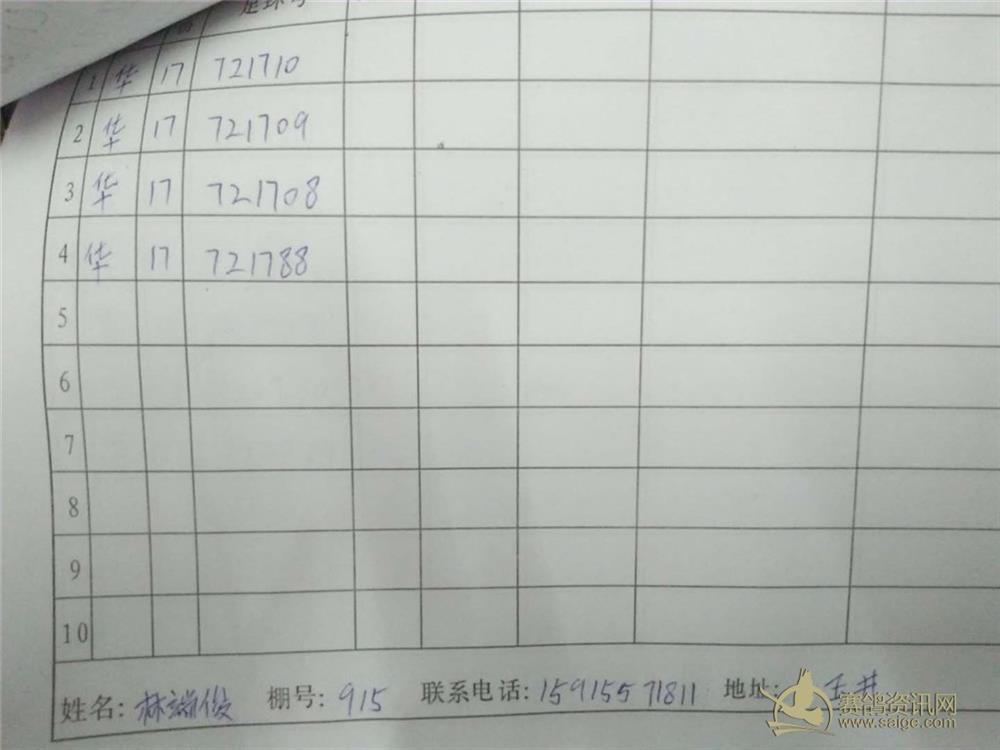 足环号
1 华 17 721710
2 华 17 721709
3 华 17 721708
4 华 17 721788
5
6
7
8
9
10
姓名: 林端俊 棚号: 915 联系电话: 15915571811 地址: 玉井
赛鸽资讯网
www.saigc.com